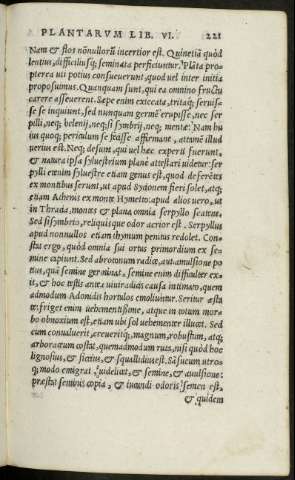 PLANTARVM LIB. VI. 221
Nam & flos nõnullorũ incertior est. Quinetiã quòd
lentius, difficiliusq; seminata perficiuntur. Plãta pro-
pterea uti potius consueuerunt, quod uel inter initia
proposuimus. Quanquam sunt, qui ea omnino fructu
carere asseuerent. Sæpe enim exiccata, tritaq; seruis-
se se inquiunt, sed nunquam germẽ erupisse, nec ser
pilli, neq; helenij, neq; sisymbrij, neq; mentæ: Nam hu
ius quoq; periculum se fecisse affirmant, attamẽ illud
uerius est. Neq; desunt, qui uel hæc experti fuerunt,
& natura ipsa syluestrium planè attestari uidetur: ser
pylli etenim syluestre etiam genus est, quod deferẽtes
ex montibus serunt, ut apud Sydonem fieri solet, atq;
etiam Athenis ex monte Hymetto: apud alios uero, ut
in Thracia, montes & plana omnia serpyllo scatent,
Sed sisymbrio, reliquisque odor acrior est. Serpyllus
apud nonnullos etiam thymum penitus redolet. Con
stat ergo, quòd omnia sui ortus primordium ex se-
mine capiunt. Sed abrotonum radice, aut auulsione po
tius, quã semine germinat, semine enim difficulter ex-
it, & hoc testis antea uiuiradicis causa intimato, quem
admodum Adonidis hortulos emoliuntur. Seritur æsta
te, friget enim uehementissime, atque in totum mor-
bo obnoxium est, etiam ubi sol uehementer illucet. Sed
cum conualuerit, creueritq;, magnum, robustum, atq;
arboratum costat, quemadmodum ruta, nisi quòd hoc
lignosius, & siccius, & squallidius est. Sã sucum utro-
q; modo emigrat uidelicet, & semine, & auulsione:
præstat seminis copia, & iucundi odoris semen est,
& quidem